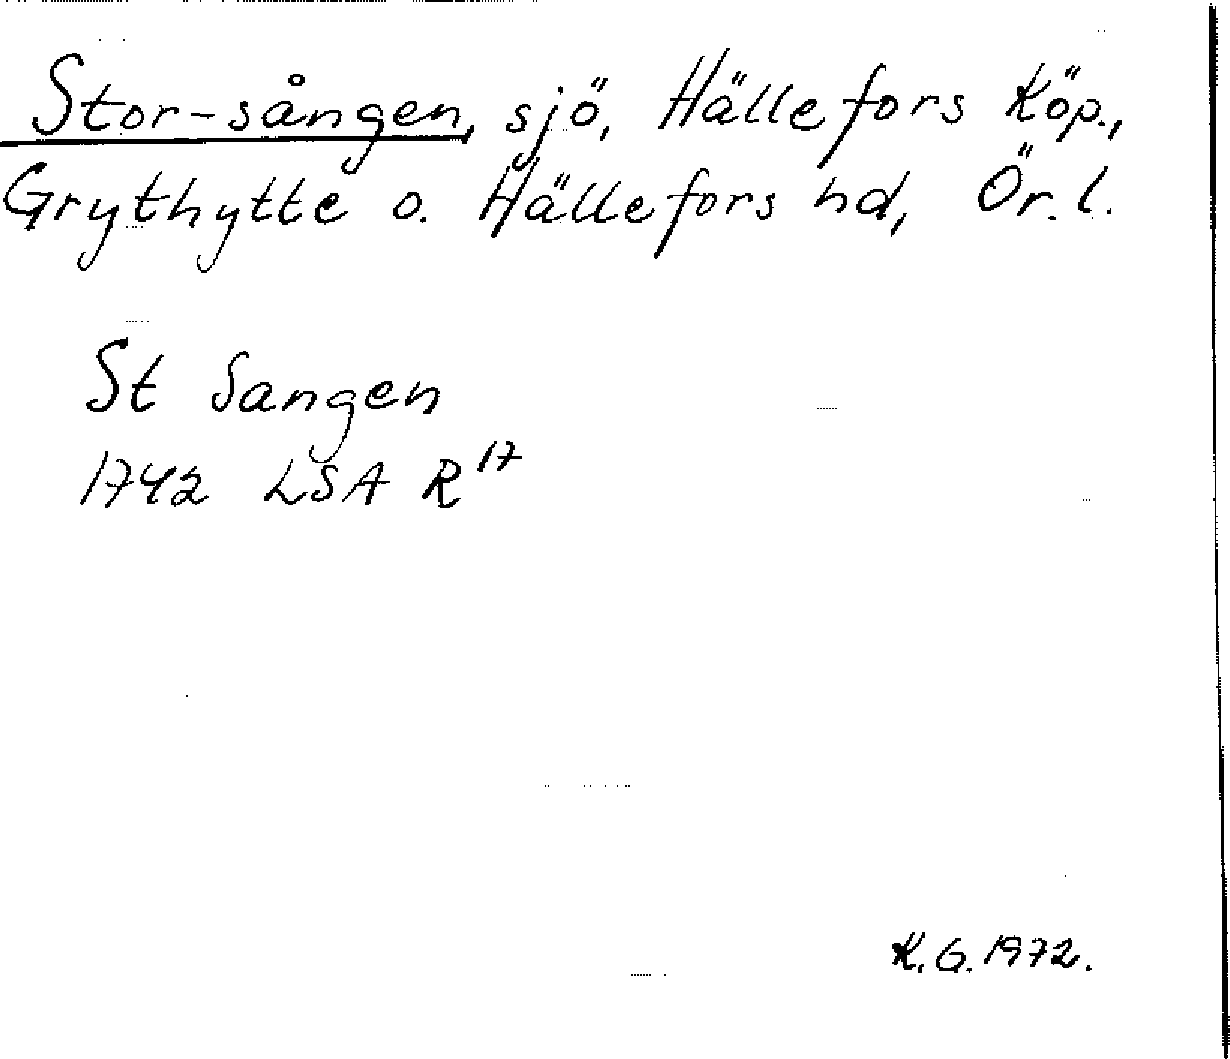 Stor-sången, sjö, Hällefors köp.,
Grythytte o. Hällefors hd, Ör. l.
St Sangen
1742 LSA R¹⁷
K. G. 1972.